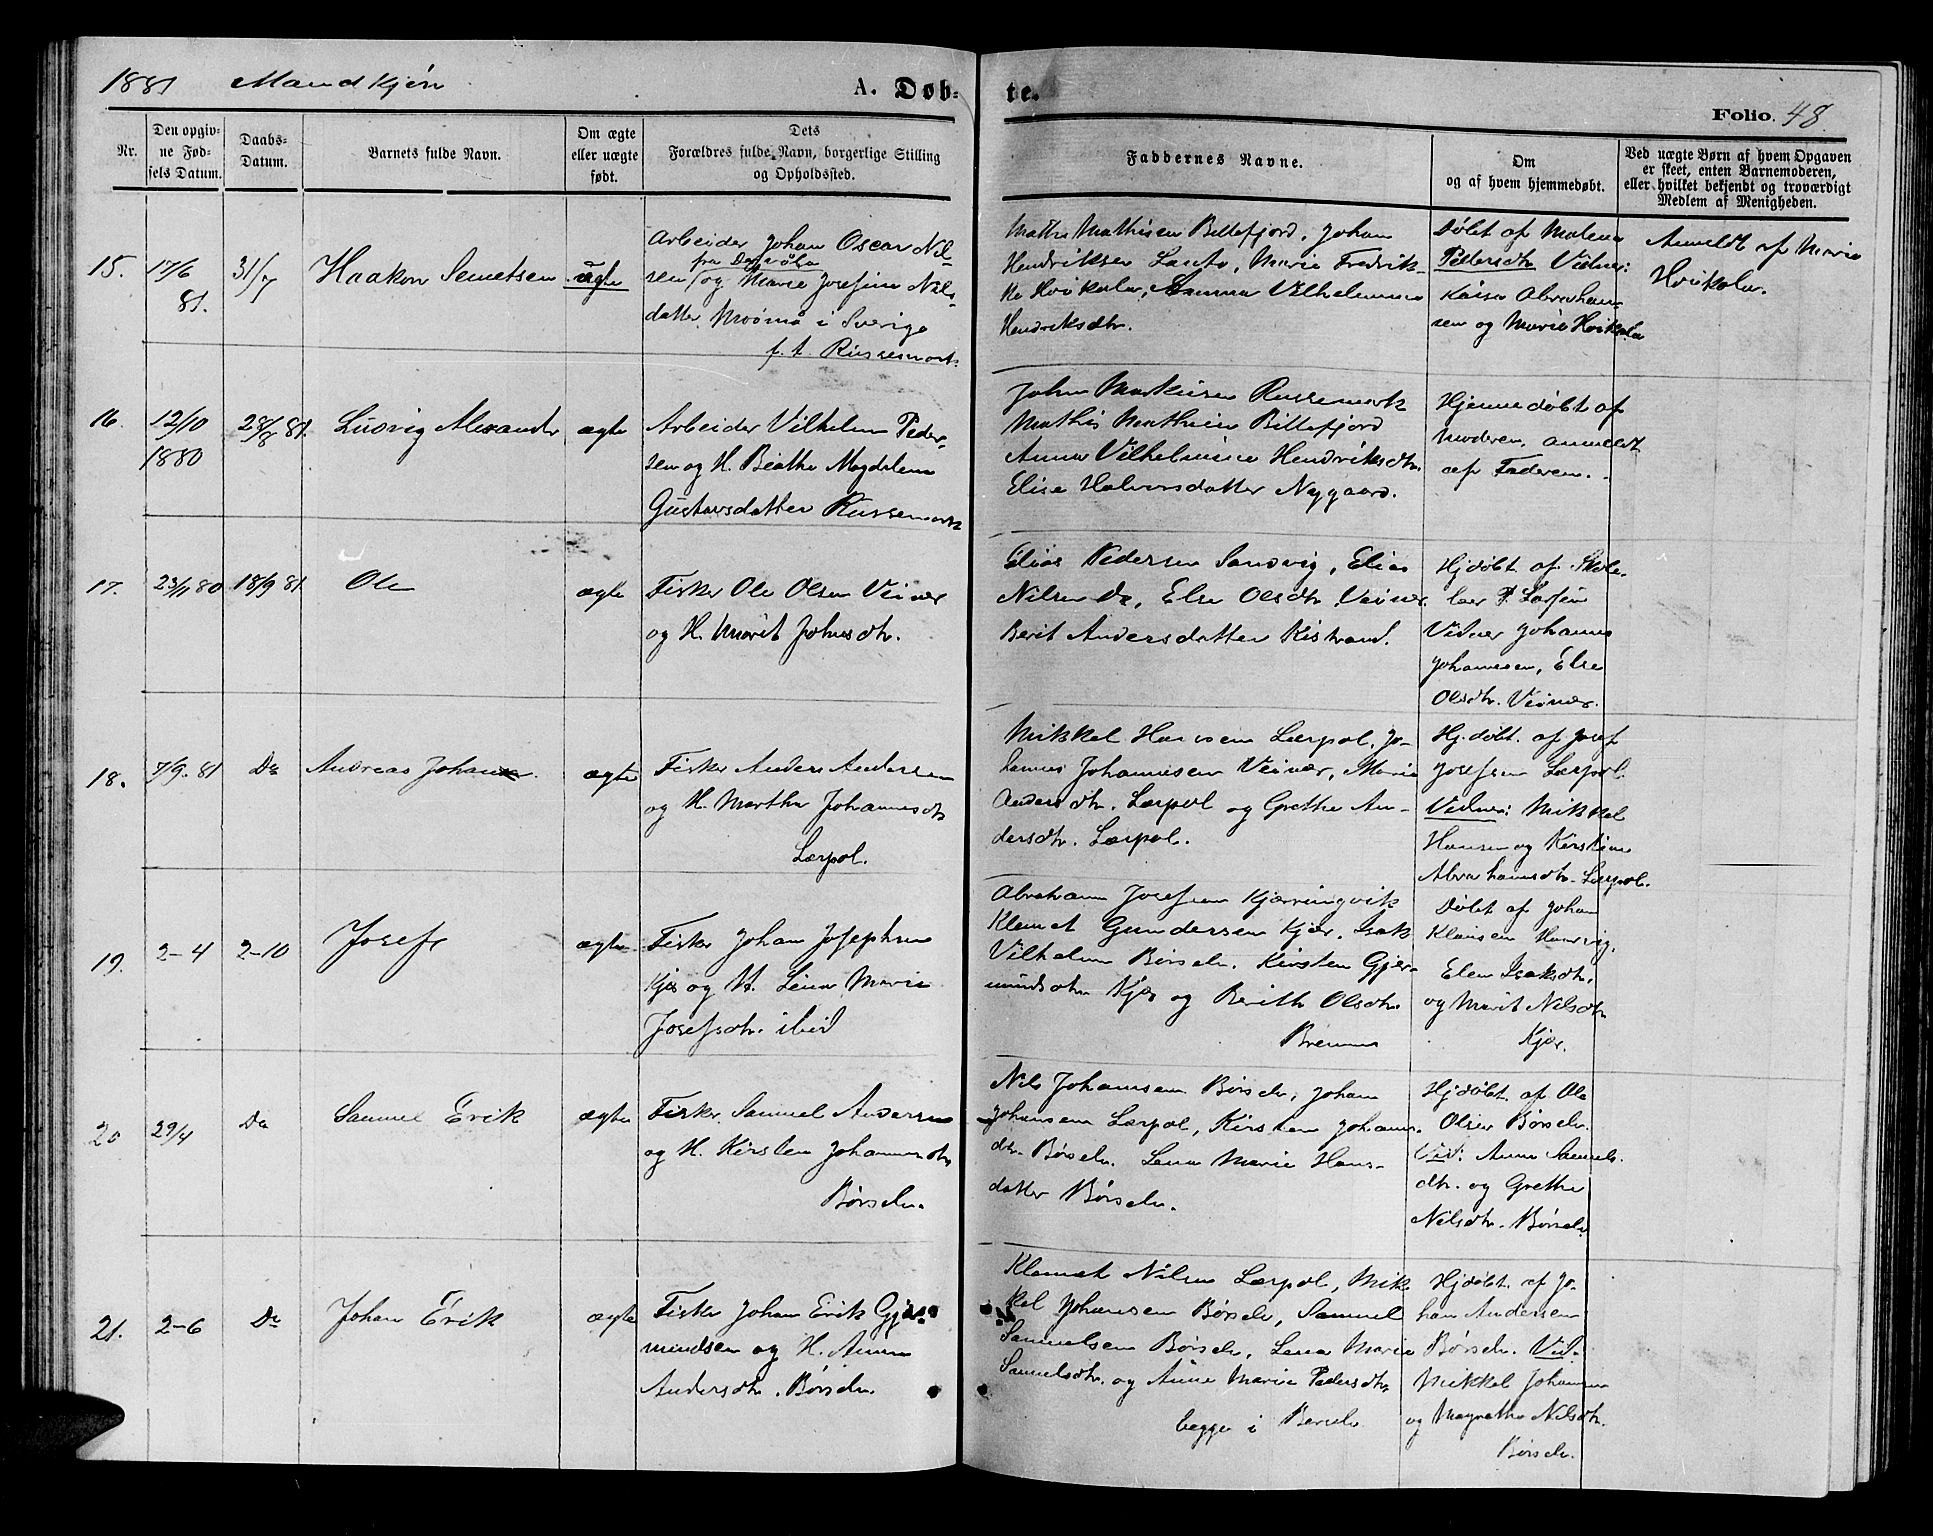 1881 Mandkjøn
A. Døb-
te.
Folio. 48.
Nr.
Den opgiv-
ne Fød-
sels Datum.
Daabs-
Datum.
Barnets fulde Navn.
Om ægte
eller uægte
født.
Dets
Forældres fulde Navn, borgerlige Stilling
og Opholdssted.
Faddernes Navne.
Om
og af hvem hjemmedøbt.
Ved uægte Børn af hvem Opgaven
er skeet, enten Barnemoderen,
eller hvilket bekjendt og troværdigt
Medlem af Menigheden.
15.
17/6
81.
31/7
Haakon Semetsen
uægte
Arbeider Johan Oscar Nil-
sen
og Marie Josefine Nils-
datter, i Sverige
f. t. Russemark.
Mathis Mathisen Billefjord, Johan
Hendriksen Lanto, Marie Fredrik-
ke Hvikola, Anna Vilhelmine
Hendriksdtr.
Døbt af Malena
Pedersdtr Vidner:
Kaisa Abraham-
sen og Maria Hvikola
Anmeldt af Maria
Hvikola.
16.
12/10
1880
28/8 81.
Ludvig Alexander
ægte
Arbeider Vilhelm Peder-
sen og H. Beathe Magdalena
Gustavsdatter Russemark
Johan Markusen Russemark
Mathis Mathisen Billefjord
Anna Vilhelmine Hendriksdtr.
Elise Halvorsdatter Nygaard.
Hjemmedøbt af
Moderen, anmeldt
af Faderen.
17.
23/11 80
18/9 81
Ole
ægte
Fisker Ole Olsen Veinær
og H. Marit Johnsdtr.
Elias Pedersen Sandvig, Elias
Nilsen Do, Else Olsdtr. Veinær.
Berit Andersdatter Kistrand.
Hjdøbt af Skole-
lær P. Larsen
Vidner Johannes
Johannesen, Else
Olsdtr. Veinær.
18.
7/9. 81
Do
Andreas Johan
ægte
Fisker Anders Andersen
og H. Marthe Johannesdtr
Lærpol.
Mikkel Hansen Lærpol, Jo-
hannes Johannesen Veinær, Marie
Andersdtr. Lærpol og Grethe An-
dersdtr. Lærpol.
Hj.døbt. af Josef
Josefsen Lærpol.
Vidner: Mikkel
Hansen og Kirstine
Abrahamsdtr. Lærpol.
19.
2-4
2-10
Josef
ægte
Fisker Johan Josephsen
Kjæs og H. Lena Marie
Josefsdtr. ibid
Abraham Josefsen Kjærringvik
Klemet Gundersen Kjær, Isak
Vilhelm Børselv. Kirsten Gjer-
mundsdtr Kjæs og Berith Olsdtr.
Brenna
Døbt af Johan
Klausen Hamvig,
Elen Isaksdtr.
og Marit Nilsdtr.
Kjær.
20
29/4
Do
Samuel Erik
ægte
Fisker Samuel Andersen
og H. Kirsten Johannesdtr
Børselv.
Nils Johansen Børselv, Johan
Johansen Lærpol, Kirsten Johans-
dtr. Børselv. Lena Marie Hans-
datter Børselv.
Hjdøbt. af Ole
Olsen Børselv.
Vid: Anna Samuels-
dtr. og Grethe
Nilsdtr. Børselv
21.
2-6
Do
Johan Erik
ægte
Fisker Johan Erik Gjer-
mundsen og H. Anna
Andersdtr. Børselv.
Klemet Nilsen Lærpol, Mik-
kel Johansen Børselv, Samuel
Samuelsen Børselv, Lena Marie
Samuelsdtr. og Anne Marie Pedersdtr.
begge i Børselv
Hjdøbt. af Jo-
han Andersen
Børselv. Vid.
Mikkel Johansen
og Magrethe Nilsdtr.
Børselv.